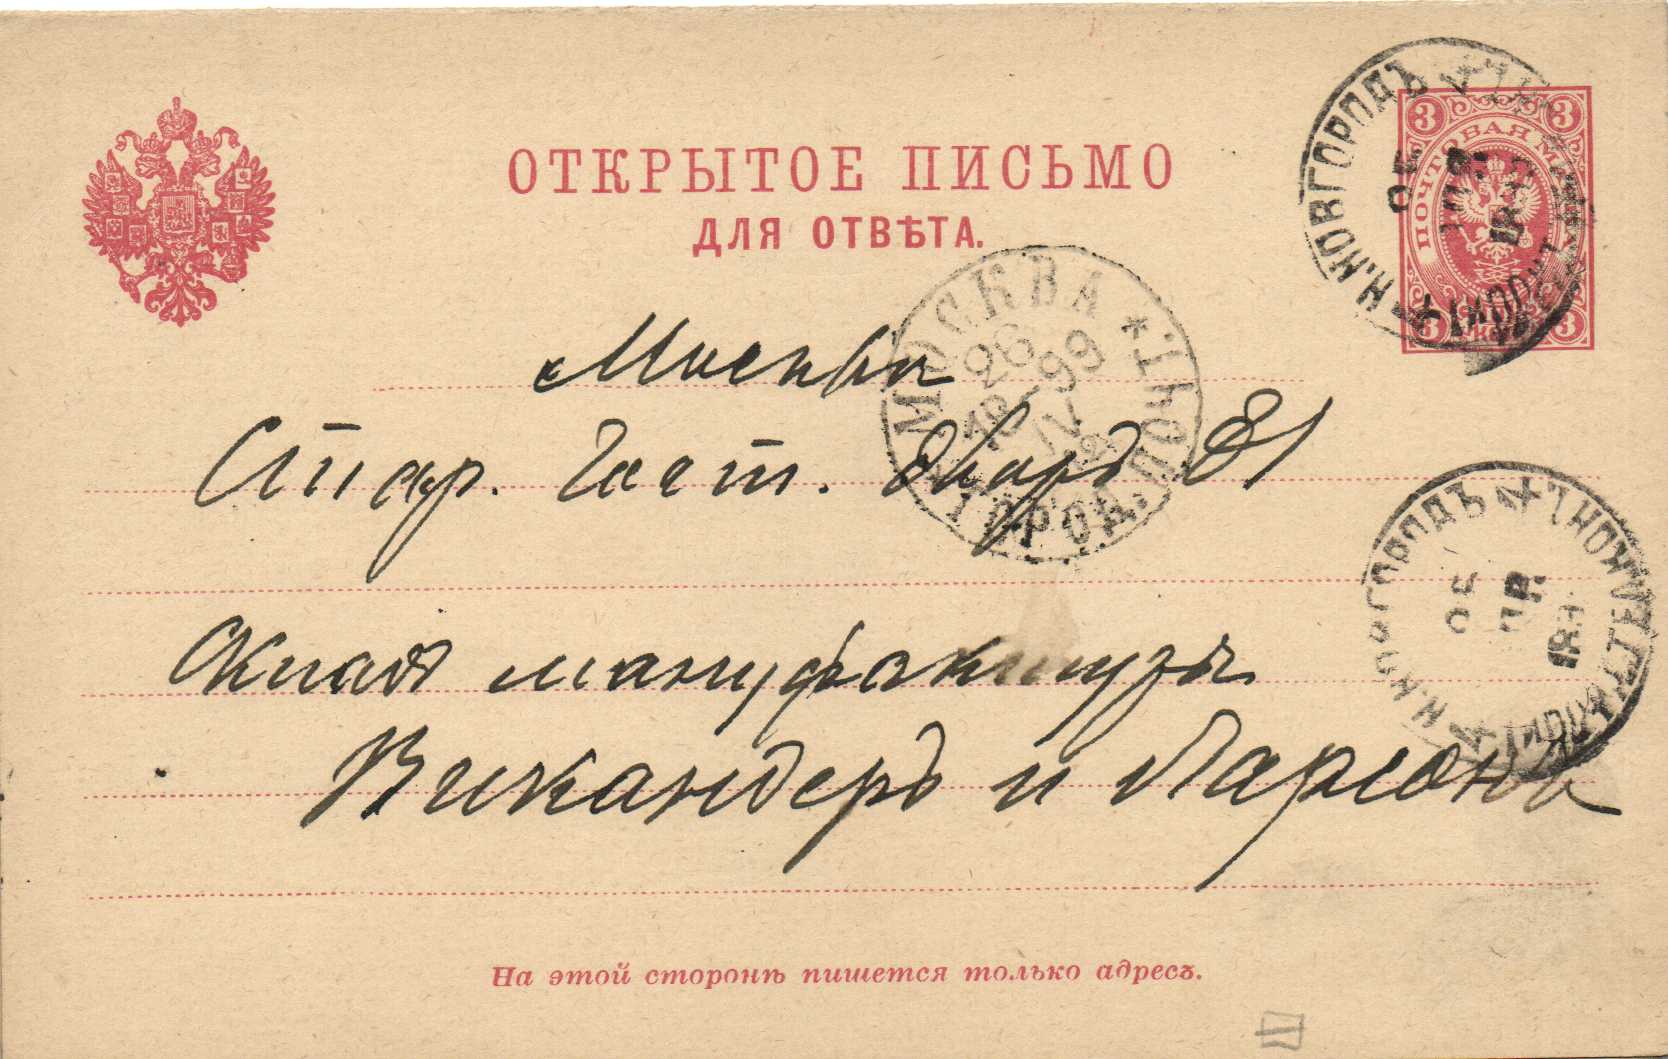 ОТКРЫТОЕ ПИСЬМО
ДЛЯ ОТВѢТА.
3 3
ПОЧТОВАЯ МАРКА
3 3
Н.НОВГОРОДЪ
МОСКВА
26
IV
99
ГОРОД. ПОЧТ.
Москва
Стар. Гост. Дворъ
Складъ мануфактуры
Викандеръ и Ларсонъ
Н.НОВГОРОДЪ
На этой сторонѣ пишется только адресъ.